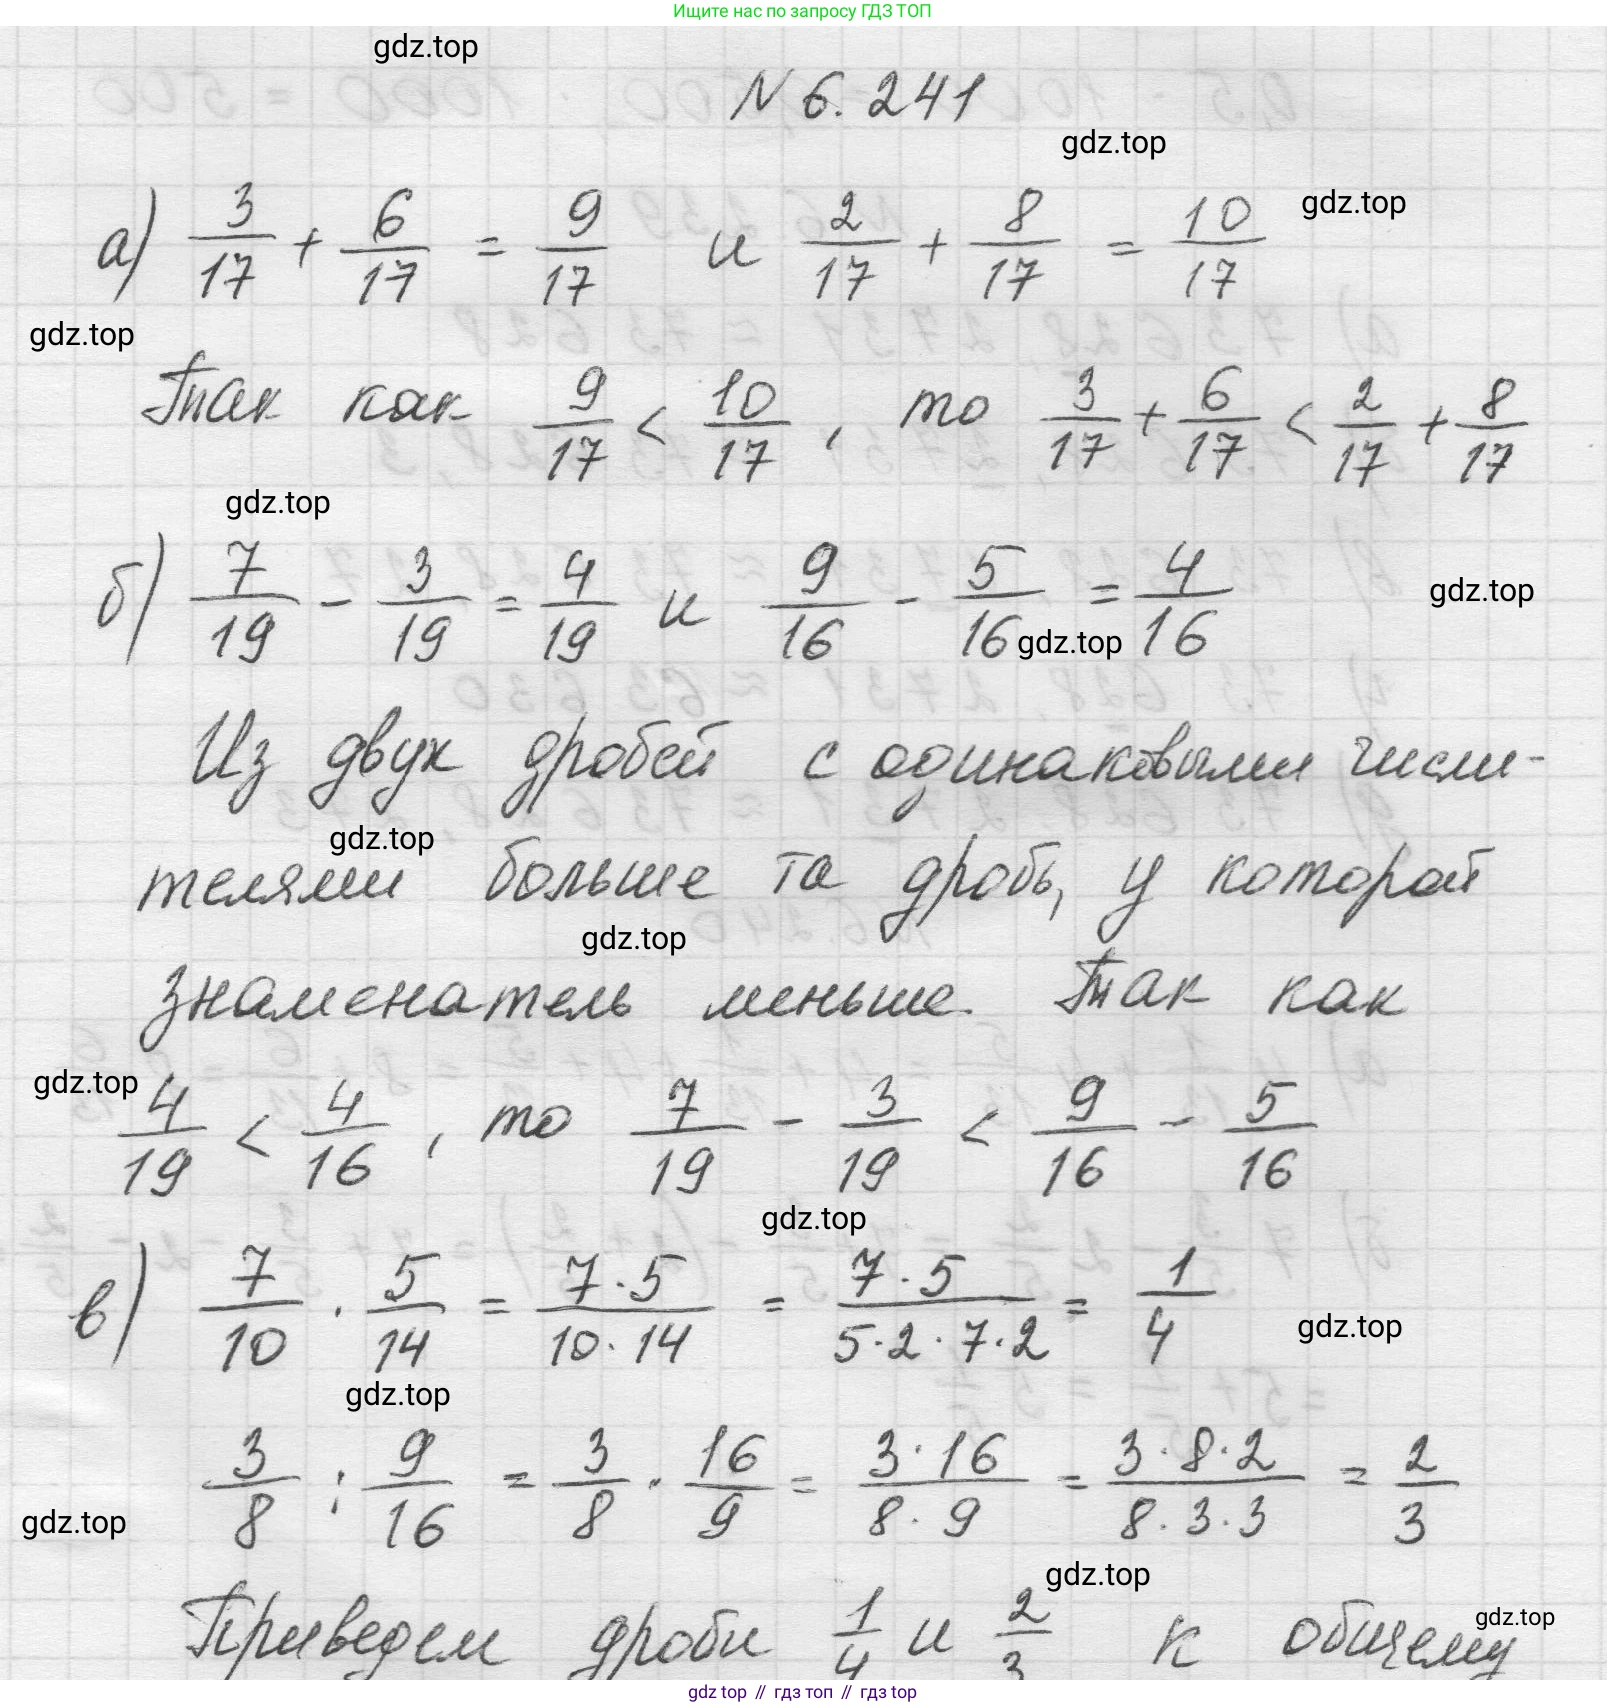 Ищите нас по запросу ГДЗ ТОП
gdz.top
N 6. 241
gdz.top
а) 3/17 + 6/17 = 9/17 и 2/17 + 8/17 = 10/17
gdz.top
gdz.top
Так как 9/17 < 10/17, то 3/17 + 6/17 < 2/17 + 8/17
gdz.top
б) 7/19 - 3/19 = 4/19 и 9/16 - 5/16 = 4/16
gdz.top
gdz.top
Из двух дробей с одинаковыми числи-
gdz.top
телями больше та дробь, у которой
gdz.top
знаменатель меньше. Так как
gdz.top
4/19 < 4/16, то 7/19 - 3/19 < 9/16 - 5/16
gdz.top
в) 7/10 · 5/14 = 7·5/10·14 = 7·5/5·2·7·2 = 1/4
gdz.top
gdz.top
3/8 : 9/16 = 3/8 · 16/9 = 3·16/8·9 = 3·8·2/8·3·3 = 2/3
gdz.top
gdz.top
Приведем дроби 1/4 и 2/3 к общему
gdz.top
gdz top // гдз топ // гдз top